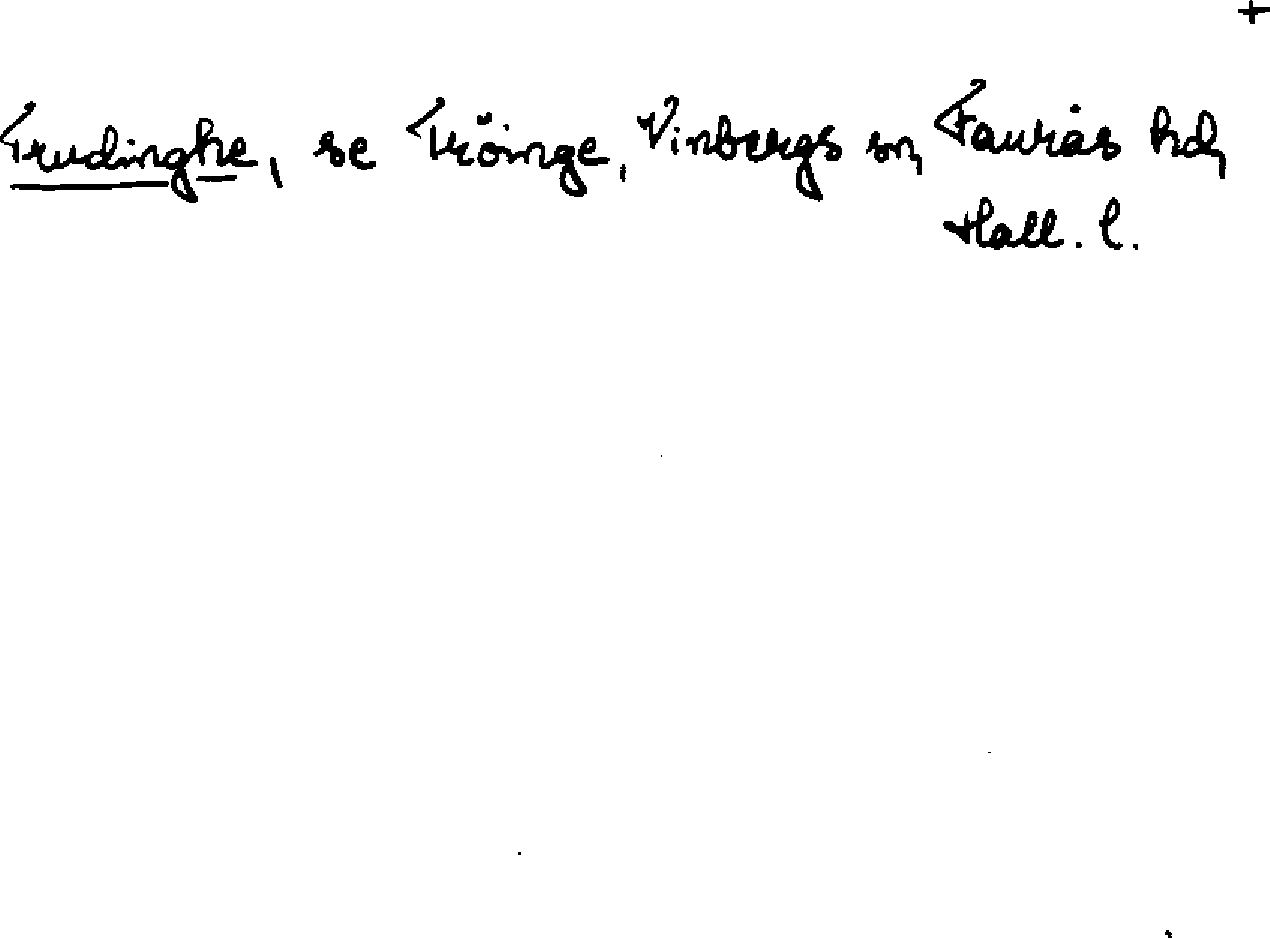 +
Trudinghe, se Tröinge, Vinbergs sn, Faurås hd,
Hall. l.